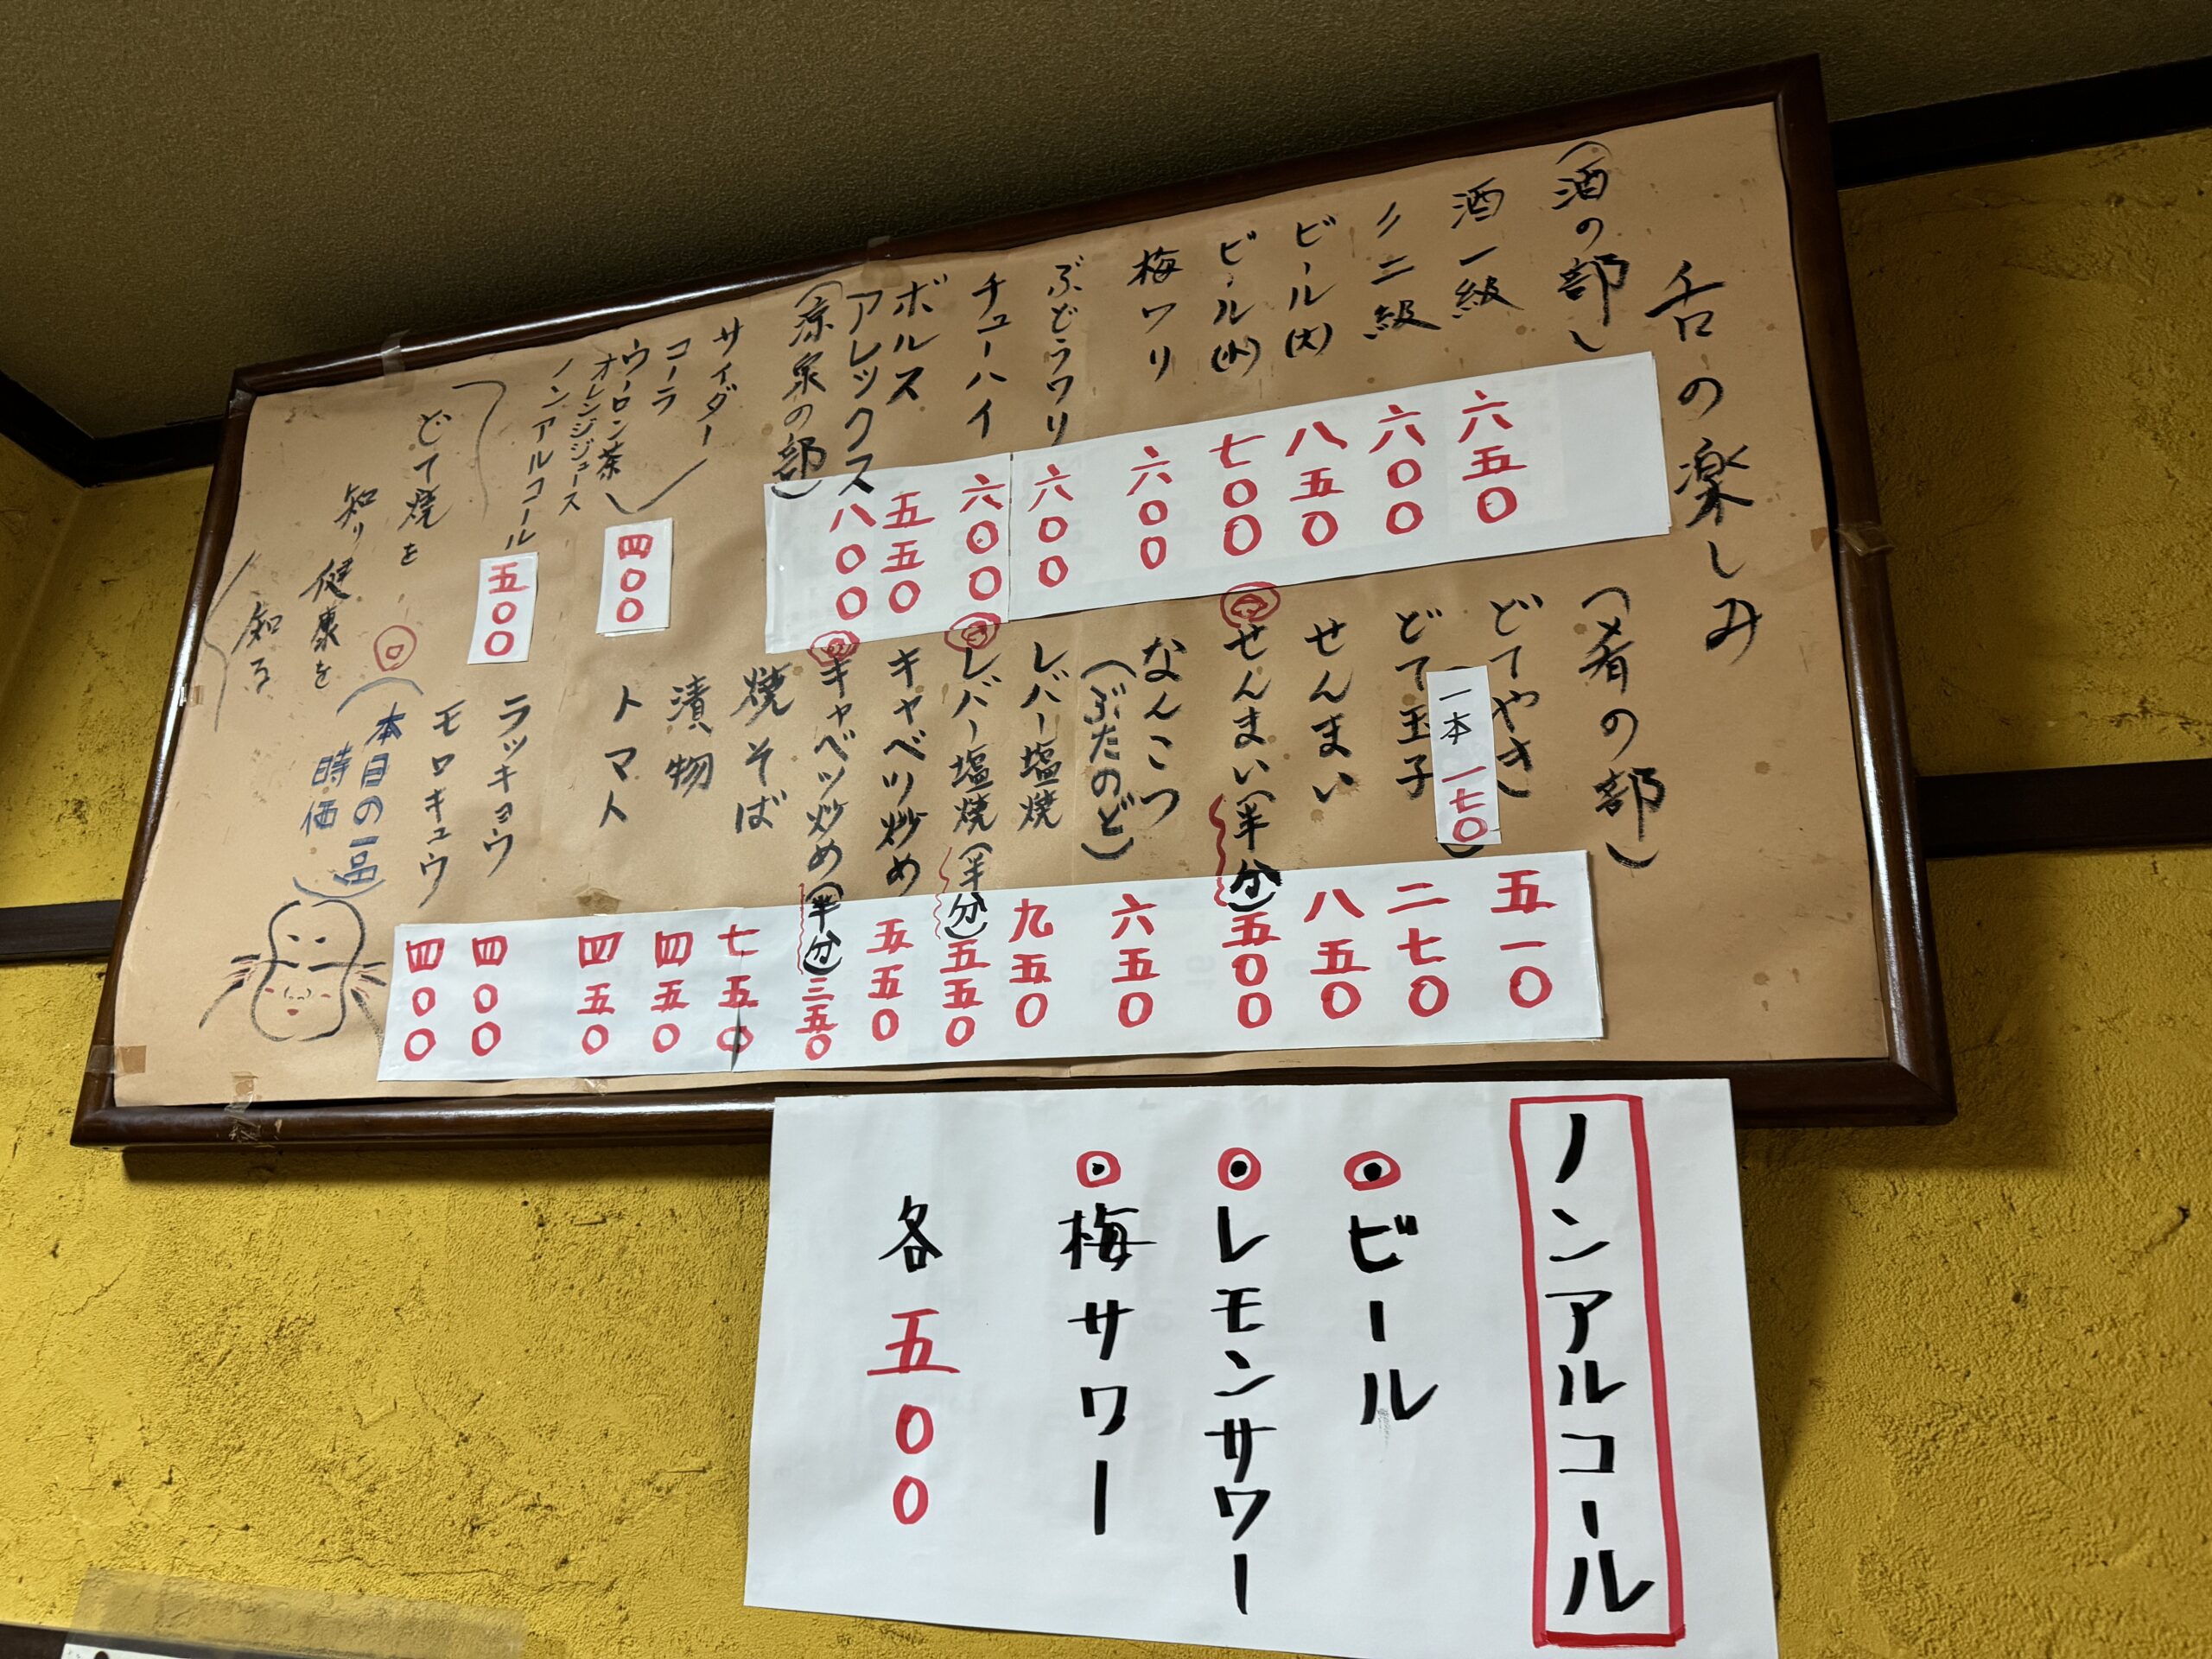 舌の楽しみ
(酒の部)
酒一級 六五〇
〃二級 六〇〇
ビール(大) 八五〇
ビール(小) 七〇〇
梅ワリ 六〇〇
ぶどうワリ 六〇〇
チューハイ 六〇〇
ボルス 五五〇
アレックス 八〇〇
(涼泉の部)
サイダー
コーラ
ウーロン茶
オレンジジュース
四〇〇
ノンアルコール 五〇〇
どて焼を
知り健康を
知る
(肴の部)
どてやき 五一〇
(一本 一七〇)
どて玉子 二七〇
せんまい 八五〇
せんまい(半分) 五〇〇
なんこつ 六五〇
(ぶたのど)
レバー塩焼 九五〇
レバー塩焼(半分) 五五〇
キャベツ炒め 五五〇
キャベツ炒め(半分) 三五〇
焼そば 七五〇
漬物 四五〇
トマト 四五〇
ラッキョウ 四〇〇
モロキュウ 四〇〇
(本日の一品)
時価
ノンアルコール
ビール
レモンサワー
梅サワー
各 五〇〇